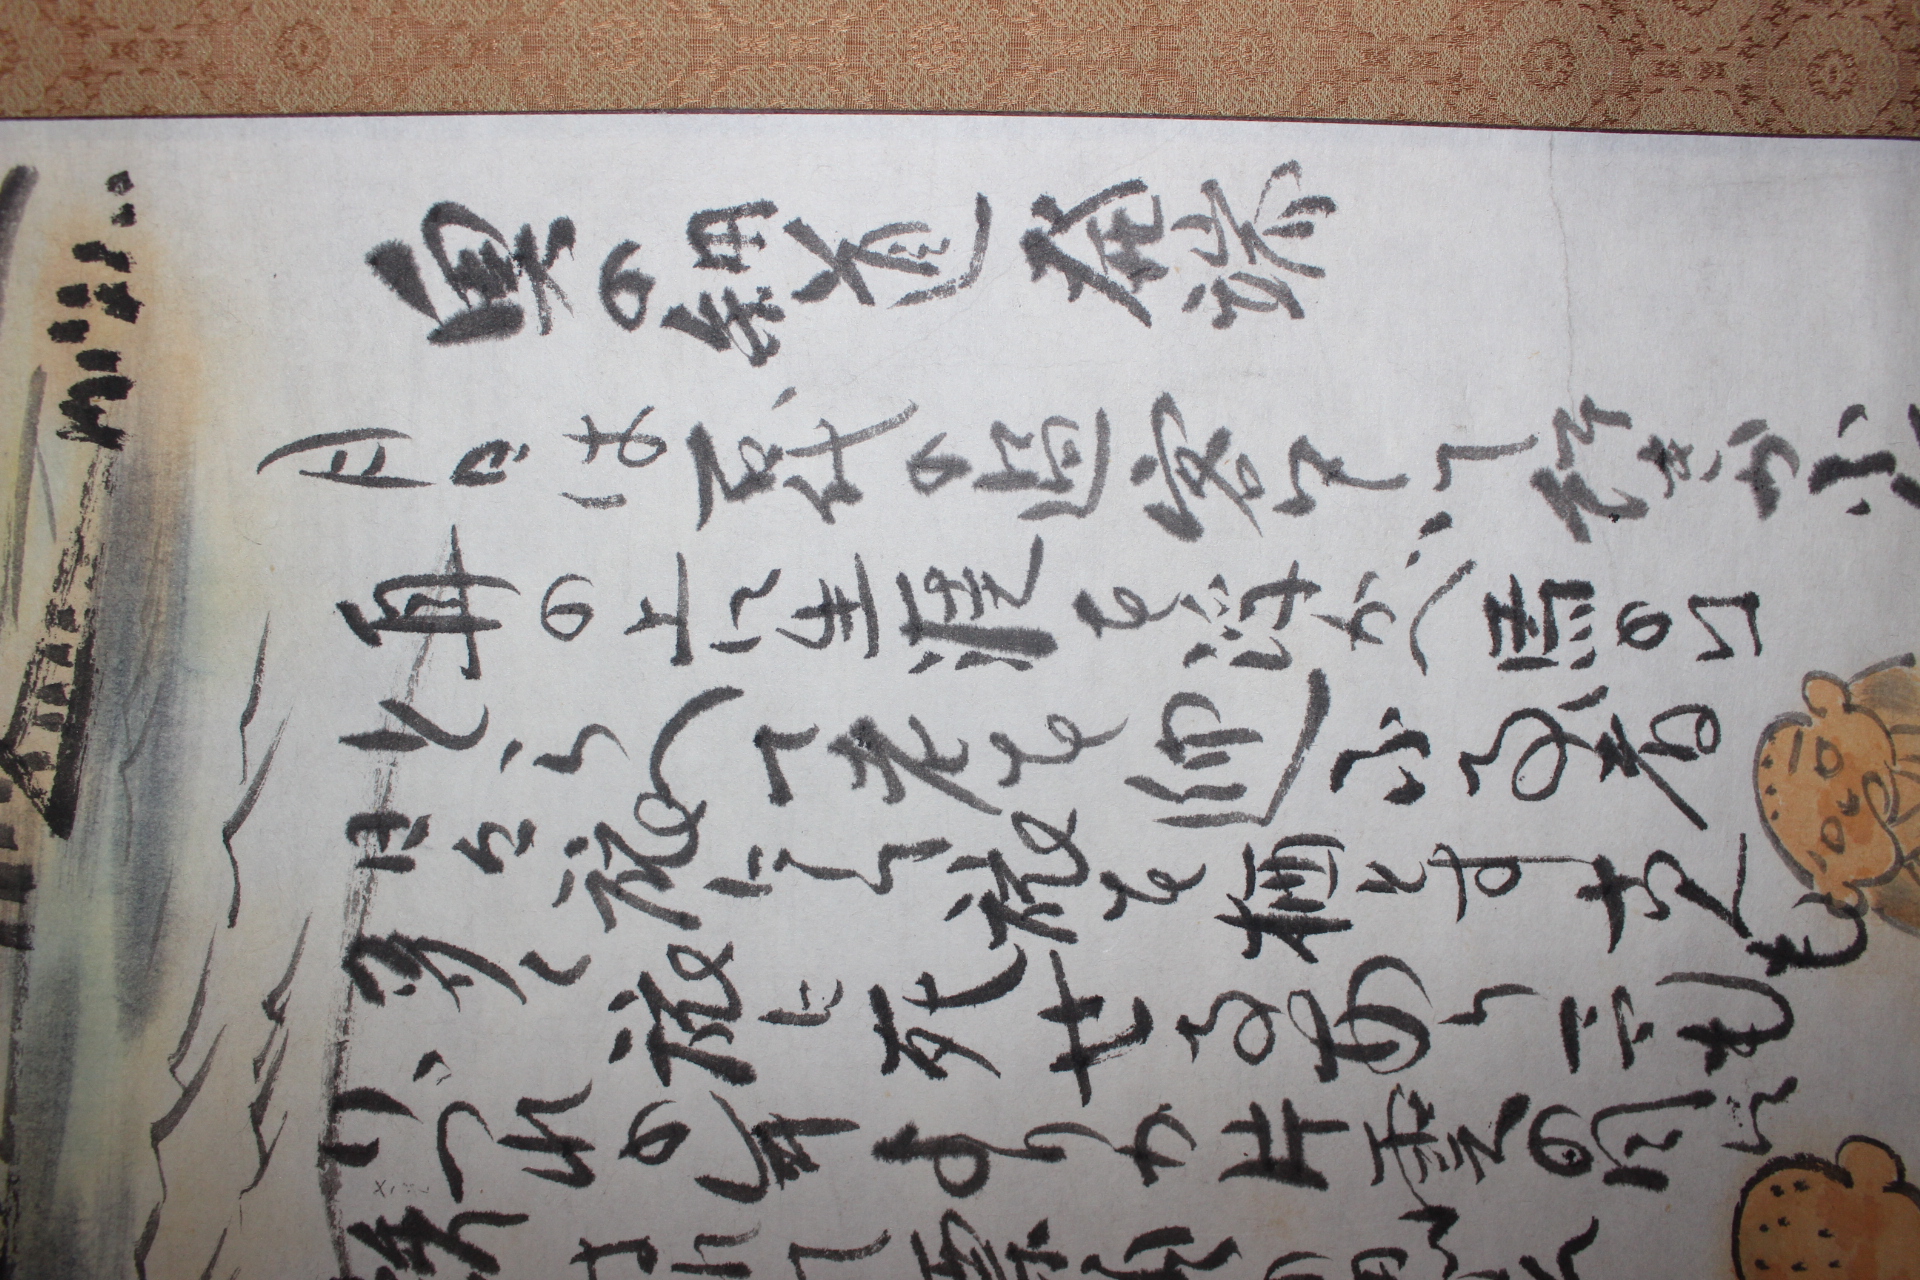 奥の細道 発端
月日は百代の過客にして行きかふ
舟の上に生涯を浮かべ馬の口
とらへて老を迎ふる者
日々旅にして旅を栖とす古人も
多く旅に死せるあり予も
いづれの年よりか片雲の風に
誘はれて漂泊の思ひ